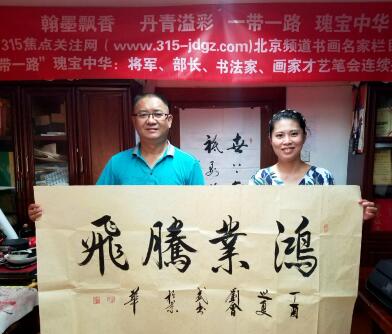 翰墨飘香 丹青溢彩 一带一路 瑰宝中华
315焦点关注网（www.315-jdgz.com)北京频道书画名家栏
带一路”瑰宝中华：将军、部长、书法家、画家才艺笔会连续
鴻業騰飛
丁酉
之夏
於京
華